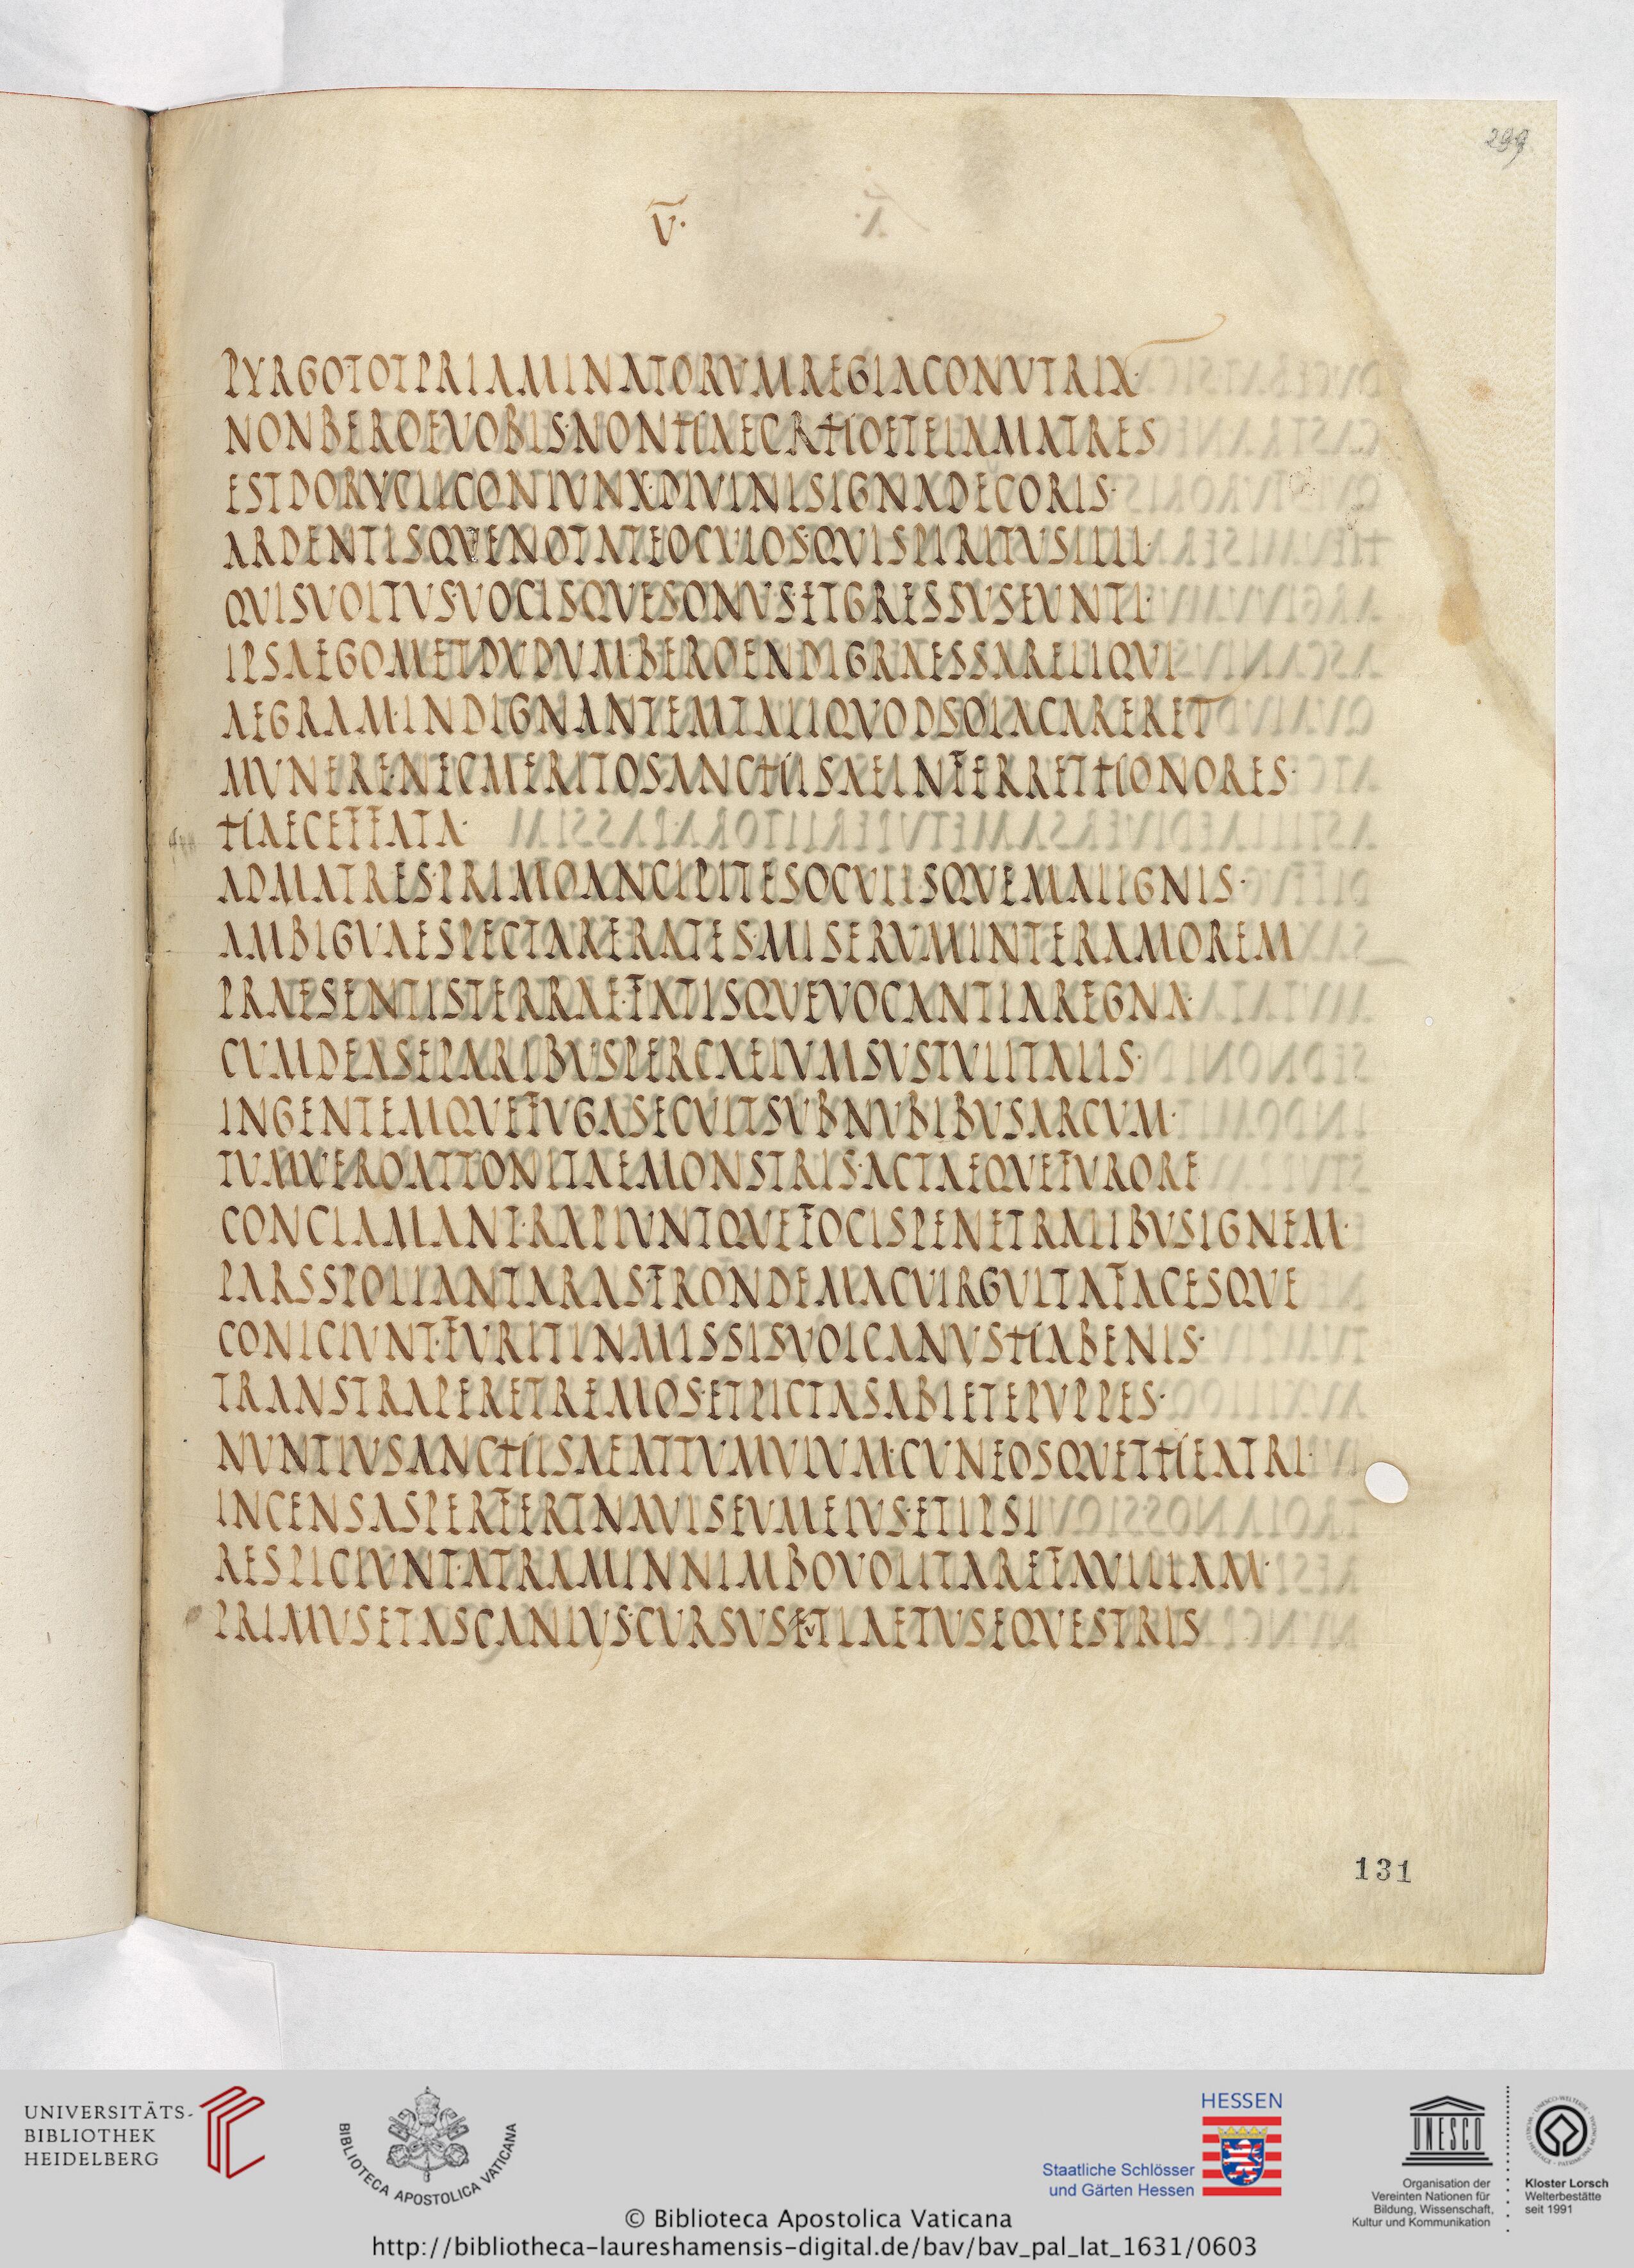 299
V·
PYRGOTOTPRIAMINATORVMREGIACONVTRIX·
NONBEROEVOBIS·NONHAECRHOETEIAMATRES
ESTDORYCLICONIVNX·DIVINISIGNADECORIS·
ARDENTISQVENOTATEOCVLOS·QVISPIRITVSILLI·
QVISVOLTVS·VOCISQVESONVS·ETGRESSVSEVNTI·
IPSAEGOMETDVDVM·BEROENDIGRAESSARELIQVI
AEGRAM·INDIGNANTEMTALIQVODSOLACARERET
MVNERE·NECMERITOSANCHISAEINFERRETHONORES·
HAECEFFATA·
ADMATRES·PRIMOANCIPITESOCVLISQVEMALIGNIS·
AMBIGVAESPECTARERATES·MISERVMINTERAMOREM
PRAESENTISTERRAE·FATISQVEVOCANTIAREGNA·
CVMDEASEPARIBVSPERCAELVMSVSTVLITALIS·
INGENTEMQVEFVGASECVITSVBNVBIBVSARCVM·
TVMVEROATTONITAEMONSTRIS·ACTAEQVEFVRORE
CONCLAMANT·RAPIVNTQVEFOCISPENETRALIBVSIGNEM·
PARSSPOLIANTARASFRONDEMACVIRGVLTAFACESQVE
CONICIVNT·FVRITINMISSISVOLCANVSHABENIS·
TRANSTRAPERETREMOS·ETPICTASABIETEPVPPES·
NVNTIVSANCHISAEATTVMVLVM·CVNEOSQVETHEATRI·
INCENSASPERFERTNAVISEVMELVS·ETIPSI
RESPICIVNT·ATRAMINNIMBOVOLITAREFAVILLAM·
PRIMVSETASCANIVS·CVRSVSETLAETVSEQVESTRIS
131
UNIVERSITÄTS-
BIBLIOTHEK
HEIDELBERG
BIBLIOTECA APOSTOLICA VATICANA
HESSEN
Staatliche Schlösser
und Gärten Hessen
UNESCO
Organisation der
Vereinten Nationen für
Bildung, Wissenschaft,
Kultur und Kommunikation
Kloster Lorsch
Welterbestätte
seit 1991
© Biblioteca Apostolica Vaticana
http://bibliotheca-laureshamensis-digital.de/bav/bav_pal_lat_1631/0603